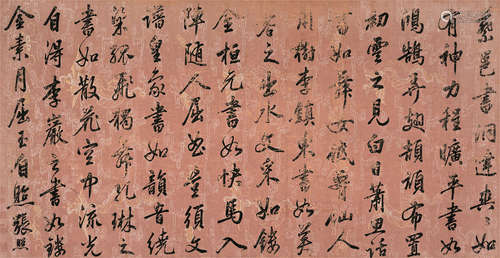 蔡邕書洞達奕〻如
有神力程曠平書如
鴻鵠弄翅頡頏布置
初雲之見白日蕭思話
書如舞女低腰仙人
嘯樹李鎮東書如芙
蓉之出水文采如鏤
金桓元書如快馬入
陣隨人屈曲豈須文
譜皇象書如韻音繞
梁孤飛獨舞孔琳之
書如散花空中流光
自得李巖之書如鏤
金素月屈玉自照張照